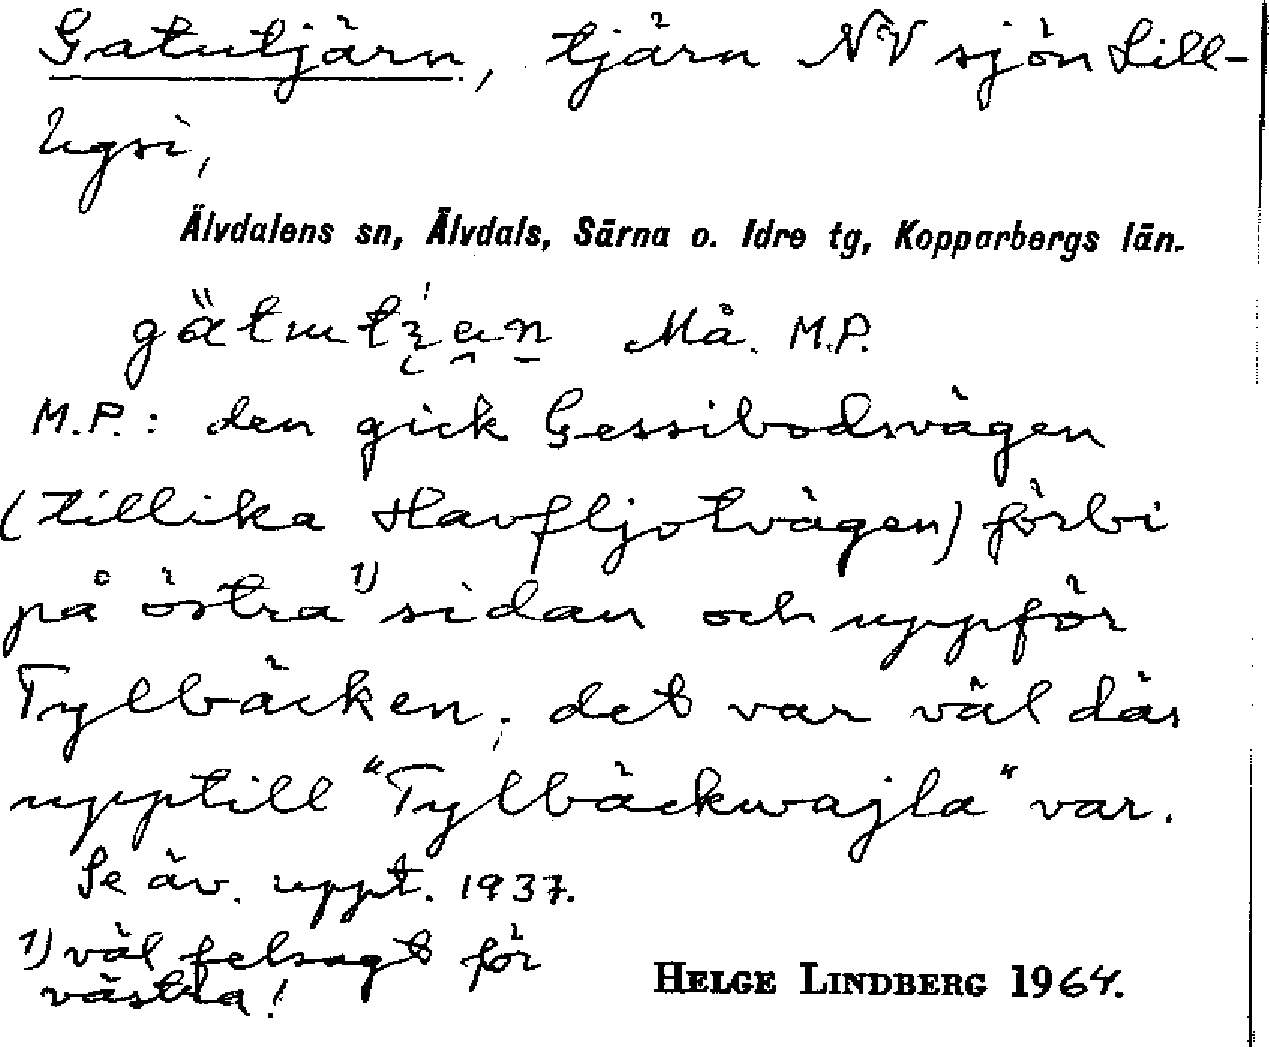 Gatutjärn, tjärn NV sjön Lill-
Ugsi,
Älvdalens sn, Älvdals, Särna o. Idre tg, Kopparbergs län.
Må. M.P.
M.P.: den gick Gessibodvägen
(tillika Havfljotvägen) förbi
på östra 1) sidan och uppför
Tylbäcken; det var väl där
upptill "Tylbäckwajla" var.
Se äv. uppt. 1937.
1) väl felsagt för
västra!
HELGE LINDBERG 1964.